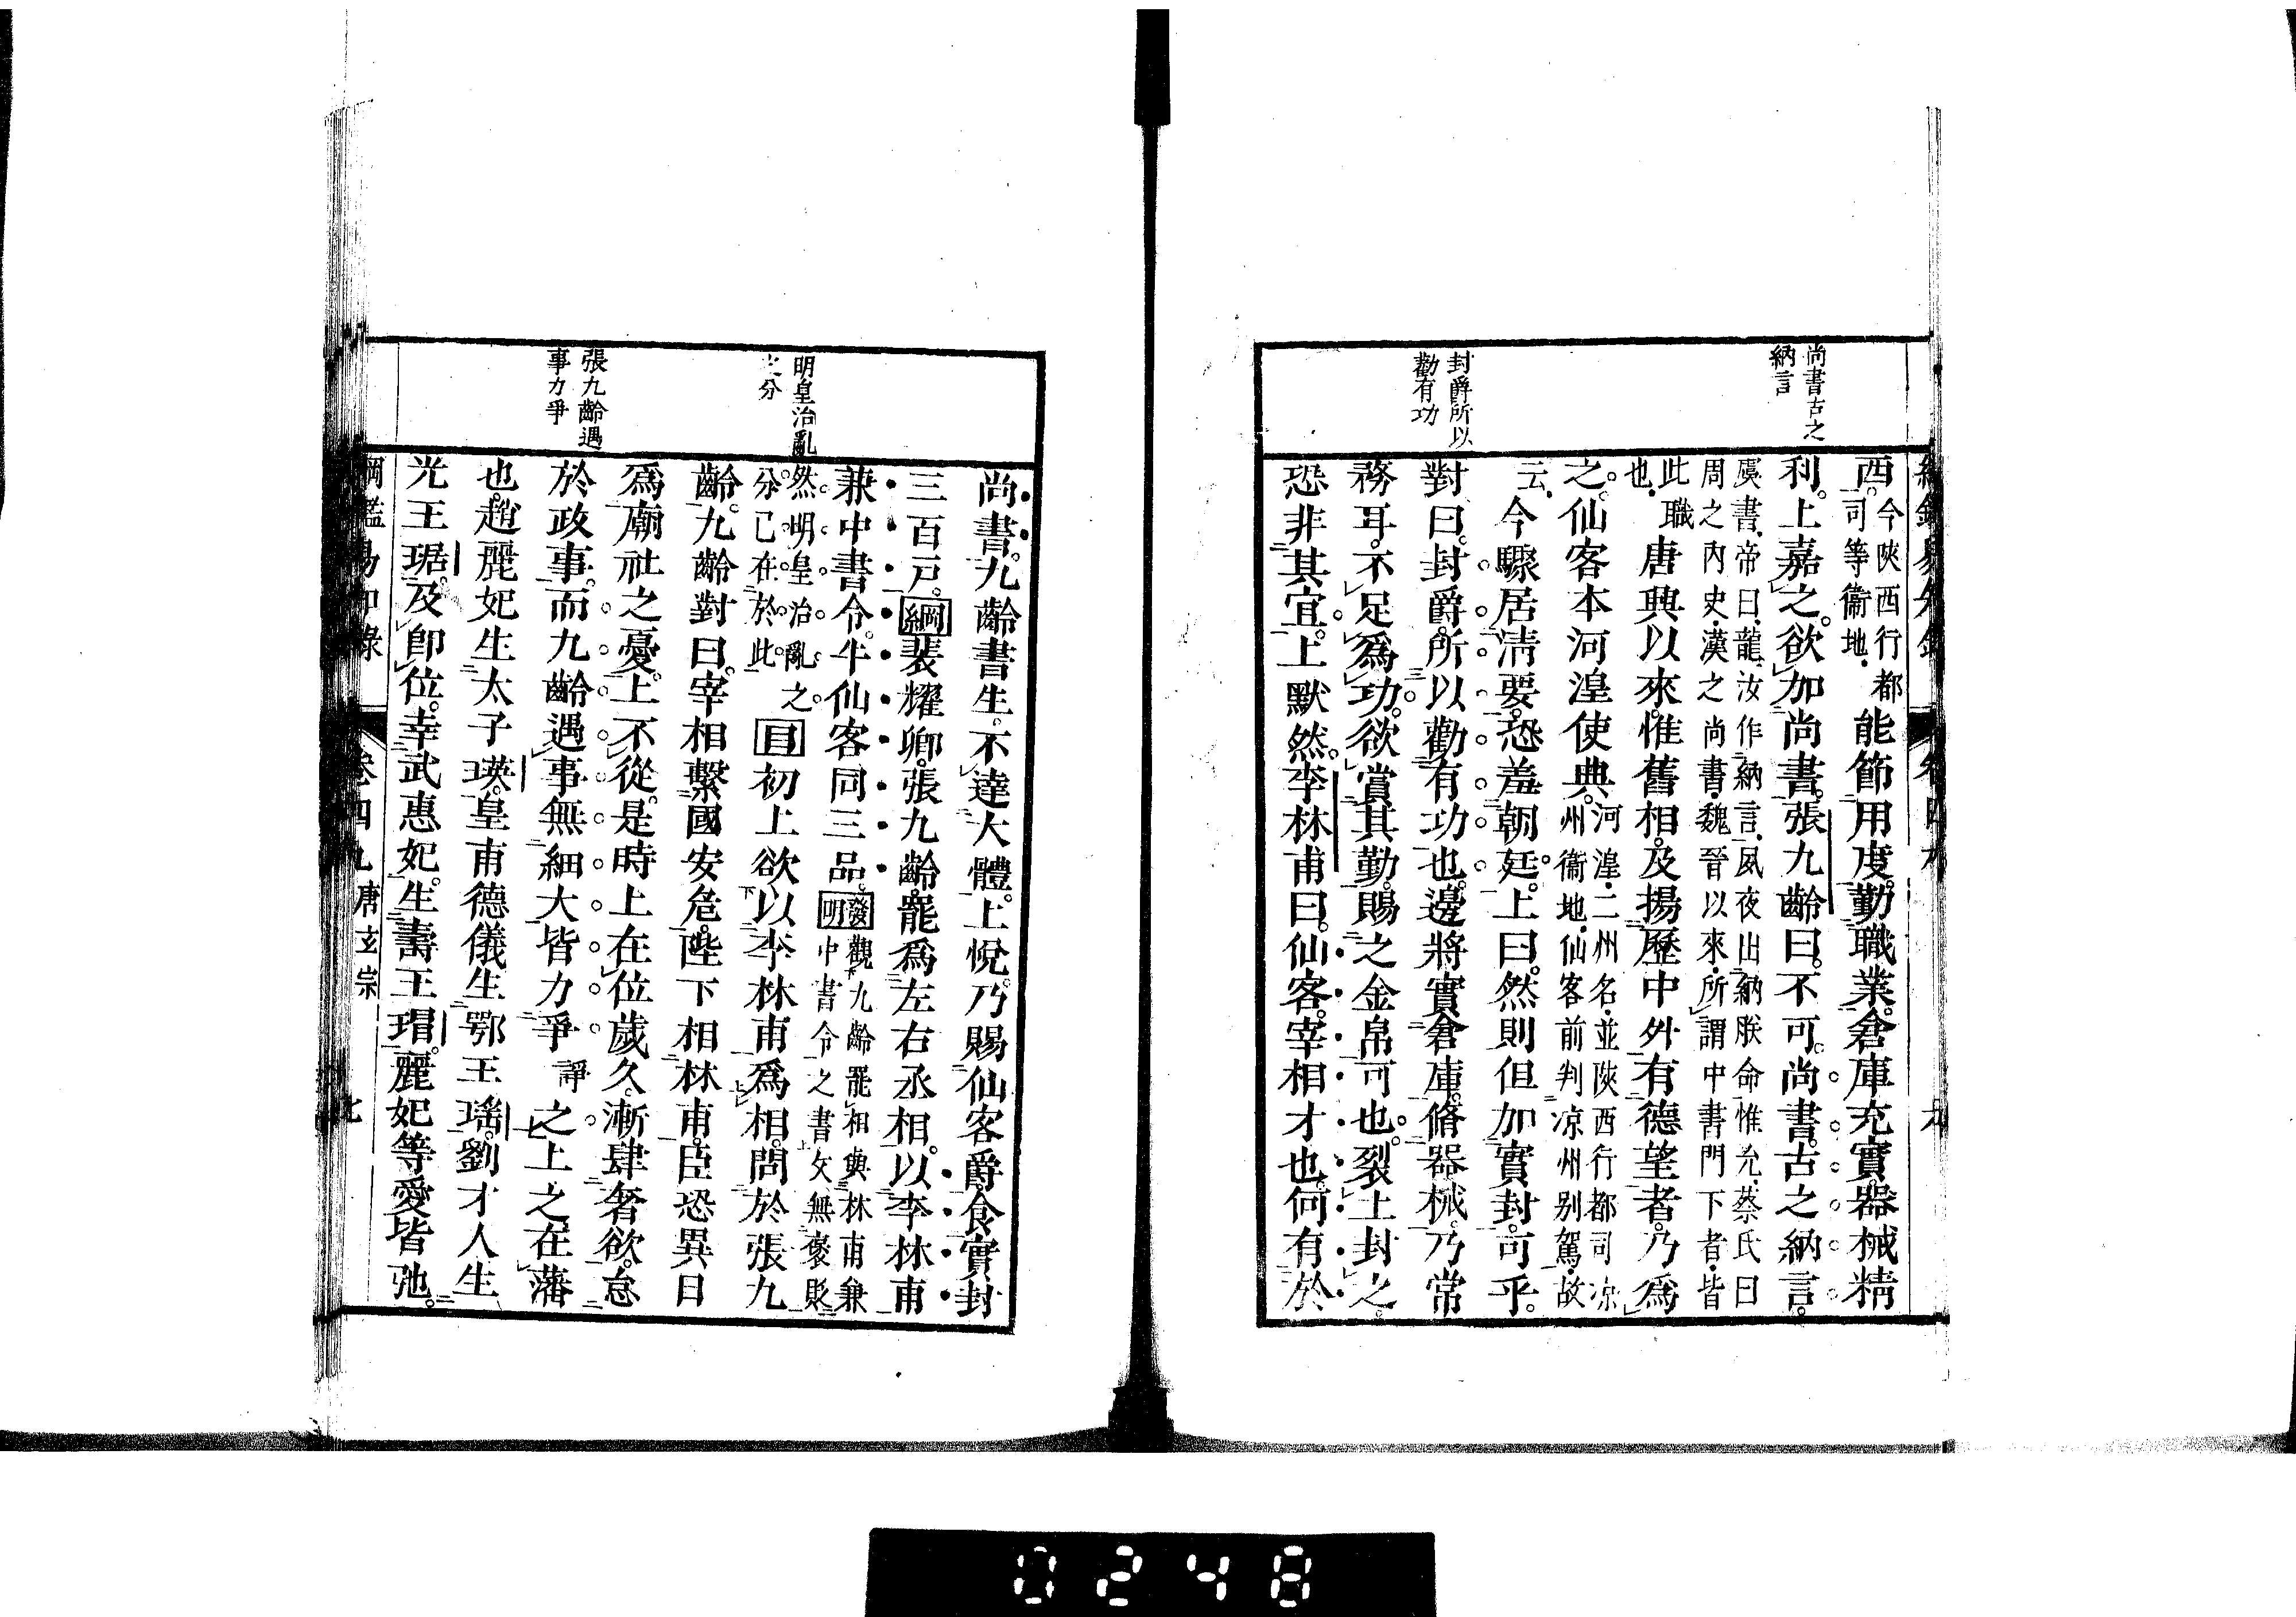 尚書古之
納言
封爵所以
勸有功
西。今陜西行都
司等衞地。能節用度。勤職業。倉庫充實。器械精
利。上嘉之。欲加尚書。張九齡曰。不可。尚書。古之納言。
虞書、帝曰、龍、汝作納言、夙夜出納朕命、惟允、蔡氏曰
周之内史、漢之尚書、魏晉以來、所謂中書門下者、皆
此職
也、唐興以來。惟舊相。及揚歷中外。有德望者。乃爲
之。仙客本河湟使典。河湟、二州名、並陜西行都司涼
州衞地、仙客前判凉州别駕、故
云、今驟居清要。恐羞朝廷。上曰。然則但加實封。可乎。
對曰。封爵。所以勸有功也。邊將實倉庫。脩器械。乃常
務耳。不足爲功。欲賞其勤。賜之金帛可也。裂土封之。
恐非其宜。上默然。李林甫曰。仙客。宰相才也。何有於
明皇治亂
之分
張九齡遇
事力爭
尚書。九齡書生。不達大體。上悅。乃賜仙客爵。食實封
三百戸。綱裴耀卿。張九齡。罷爲左右丞相。以李林甫
兼中書令。牛仙客同三品。發明觀九齡罷相與林甫兼
中書令之書文無褒貶
然明皇治亂之
分已在於此目初上欲以李林甫爲相。問於張九
齡。九齡對曰。宰相繫國安危。陛下相林甫。臣恐異日
爲廟社之憂。上不從。是時上在位歲久。漸肆奢欲。怠
於政事。而九齡遇事無細大皆力爭諍之。上之在藩
也。趙麗妃生太子瑛。皇甫德儀生鄂王瑤。劉才人生
光王琚。及即位。幸武惠妃。生壽王瑁。麗妃等愛皆弛。
綱鑑易知錄 卷四九 唐玄宗